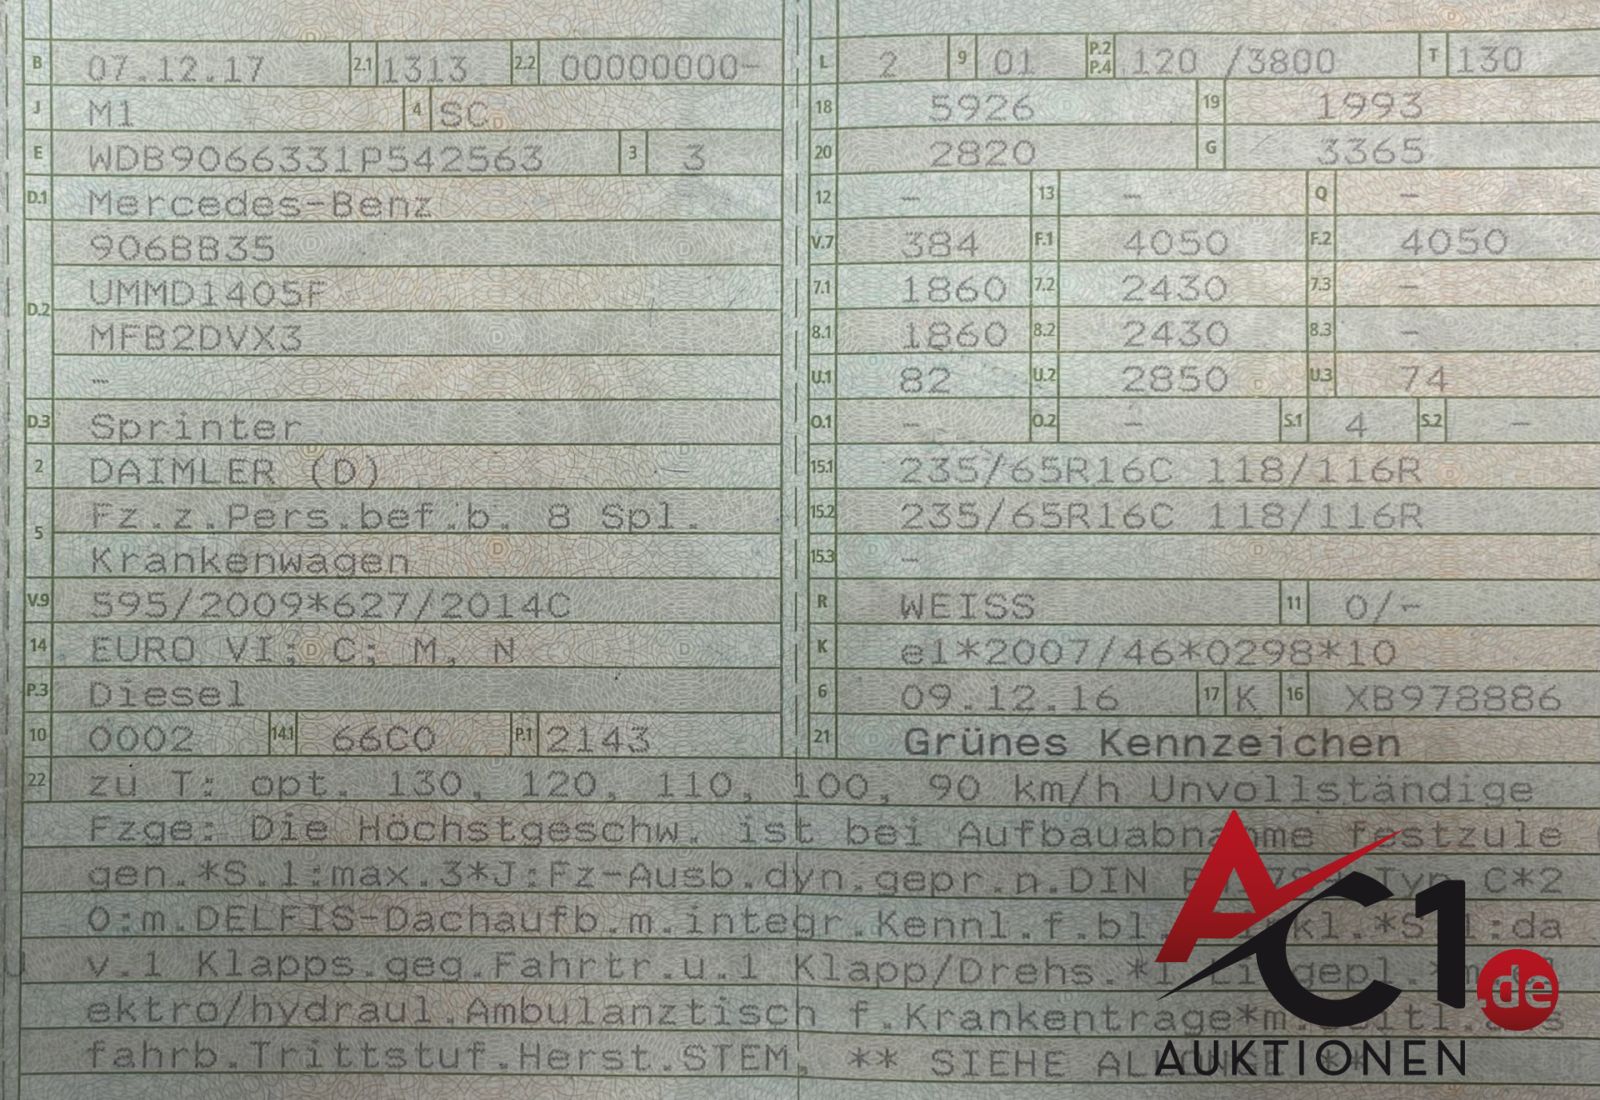 B 07.12.17 2.1 1313 2.2 00000000-
J M1 4 SC
E WDB9066331P542563 3 3
D.1 Mercedes-Benz
906BB35
D.2 UMMD1405F
MFB2DVX3
–
D.3 Sprinter
2 DAIMLER (D)
5 Fz.z.Pers.bef.b. 8 Spl.
Krankenwagen
V.9 595/2009*627/2014C
14 EURO VI; C; M, N
P.3 Diesel
10 0002 14.1 66C0 P.1 2143
L 2 9 01 P.2 P.4 120 /3800 T 130
18 5926 19 1993
20 2820 G 3365
12 – 13 – Q –
V.7 384 F.1 4050 F.2 4050
7.1 1860 7.2 2430 7.3 –
8.1 1860 8.2 2430 8.3 –
U.1 82 U.2 2850 U.3 74
O.1 – O.2 – S.1 4 S.2 –
15.1 235/65R16C 118/116R
15.2 235/65R16C 118/116R
15.3 –
R WEISS 11 0/-
K e1*2007/46*0298*10
6 09.12.16 17 K 16 XB978886
21 Grünes Kennzeichen
22 zu T: opt. 130, 120, 110, 100, 90 km/h Unvollständige
Fzge: Die Höchstgeschw. ist bei Aufbauabnahme festzule
gen.*S.1:max.3*J:Fz-Ausb.dyn.gepr.n.DIN Typ C*2
0:m.DELFIS-Dachaufb.m.integr.Kennl.f.bl. :da
v.1 Klapps.geg.Fahrtr.u.1 Klapp/Drehs.
ektro/hydraul.Ambulanztisch f.Krankentrage*m.
fahrb.Trittstuf.Herst.STEM, ** SIEHE
AC1.de
AUKTIONEN